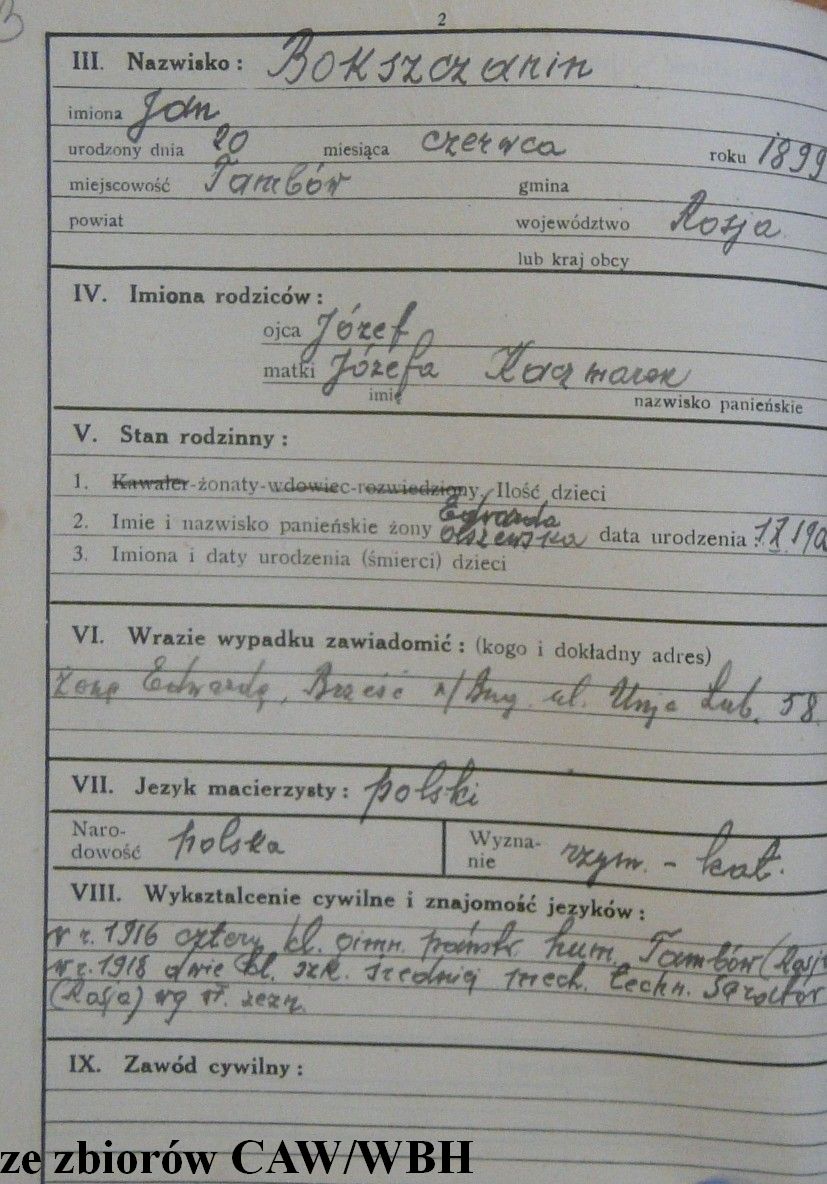 2
III. Nazwisko: Bokszczanin
imiona Jan
urodzony dnia 20 miesiąca czerwca roku 1899
miejscowość Tambów gmina
powiat województwo Rosja
lub kraj obcy
IV. Imiona rodziców:
ojca Józef
matki Józefa Kaczmarek
imię nazwisko panieńskie
V. Stan rodzinny:
1. Kawaler-żonaty-wdowiec-rozwiedziony, Ilość dzieci
2. Imie i nazwisko panieńskie żony Edwarda Olszewska data urodzenia
3. Imiona i daty urodzenia (śmierci) dzieci
VI. Wrazie wypadku zawiadomić: (kogo i dokładny adres)
żonę Edwardę, Brześć n/Bug. ul. Unja Lub. 58
VII. Jezyk macierzysty: polski
Naro-
dowość polska
Wyzna-
nie rzym. - kat.
VIII. Wykształcenie cywilne i znajomość jezyków:
w r. 1916 cztery kl. gimn. państ. hum. Tambów (Rosja
w r. 1918 dwie kl. szk. średniej mech. techn. Saratów
(Rosja) wg wł. zezn.
IX. Zawód cywilny:
ze zbiorów CAW/WBH